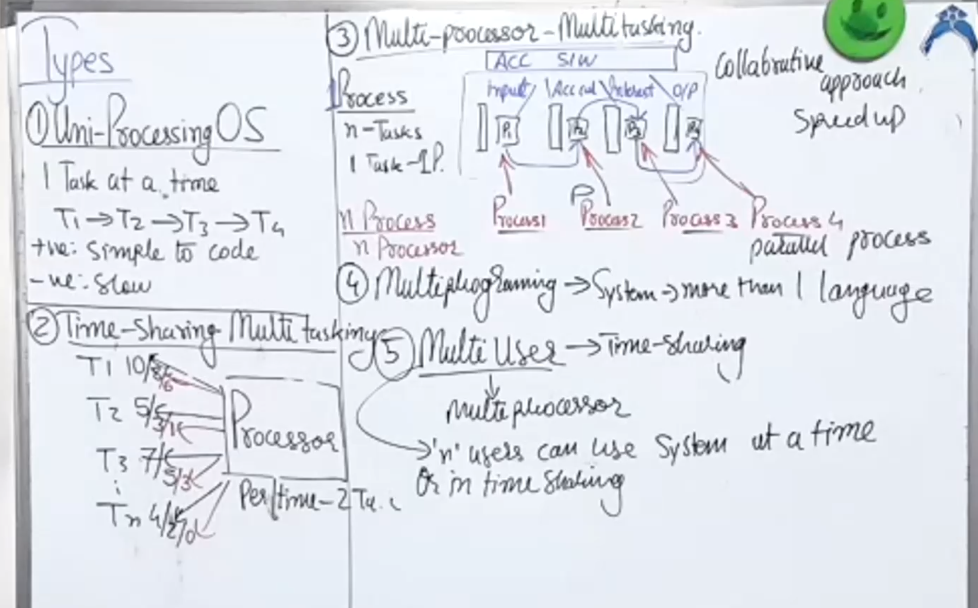 Types
① Uni-Processing OS
1 Task at a time
T1 → T2 → T3 → T4
+ve: simple to code
-ve: slow
② Time-Sharing Multitasking
T1 10/8/6
T2 5/3/1
T3 7/5/3
Tn 4/2/0
Processor
Per/time-2 Ta.
③ Multi-processor-Multitasking.
ACC S/W
Process
n-Tasks
1 Task-1P.
Input Accued Interest O/P
P1 P2 P3 P4
Collabrutive
approach
Speed up
n Process
n Processor
Process1 Process2 Process3 Process4
parallel process
④ Multiprograming → System → more than 1 language
⑤ Multi User → Time-sharing
↓
Multiprocessor
→ 'n' users can use System at a time
Or in time sharing